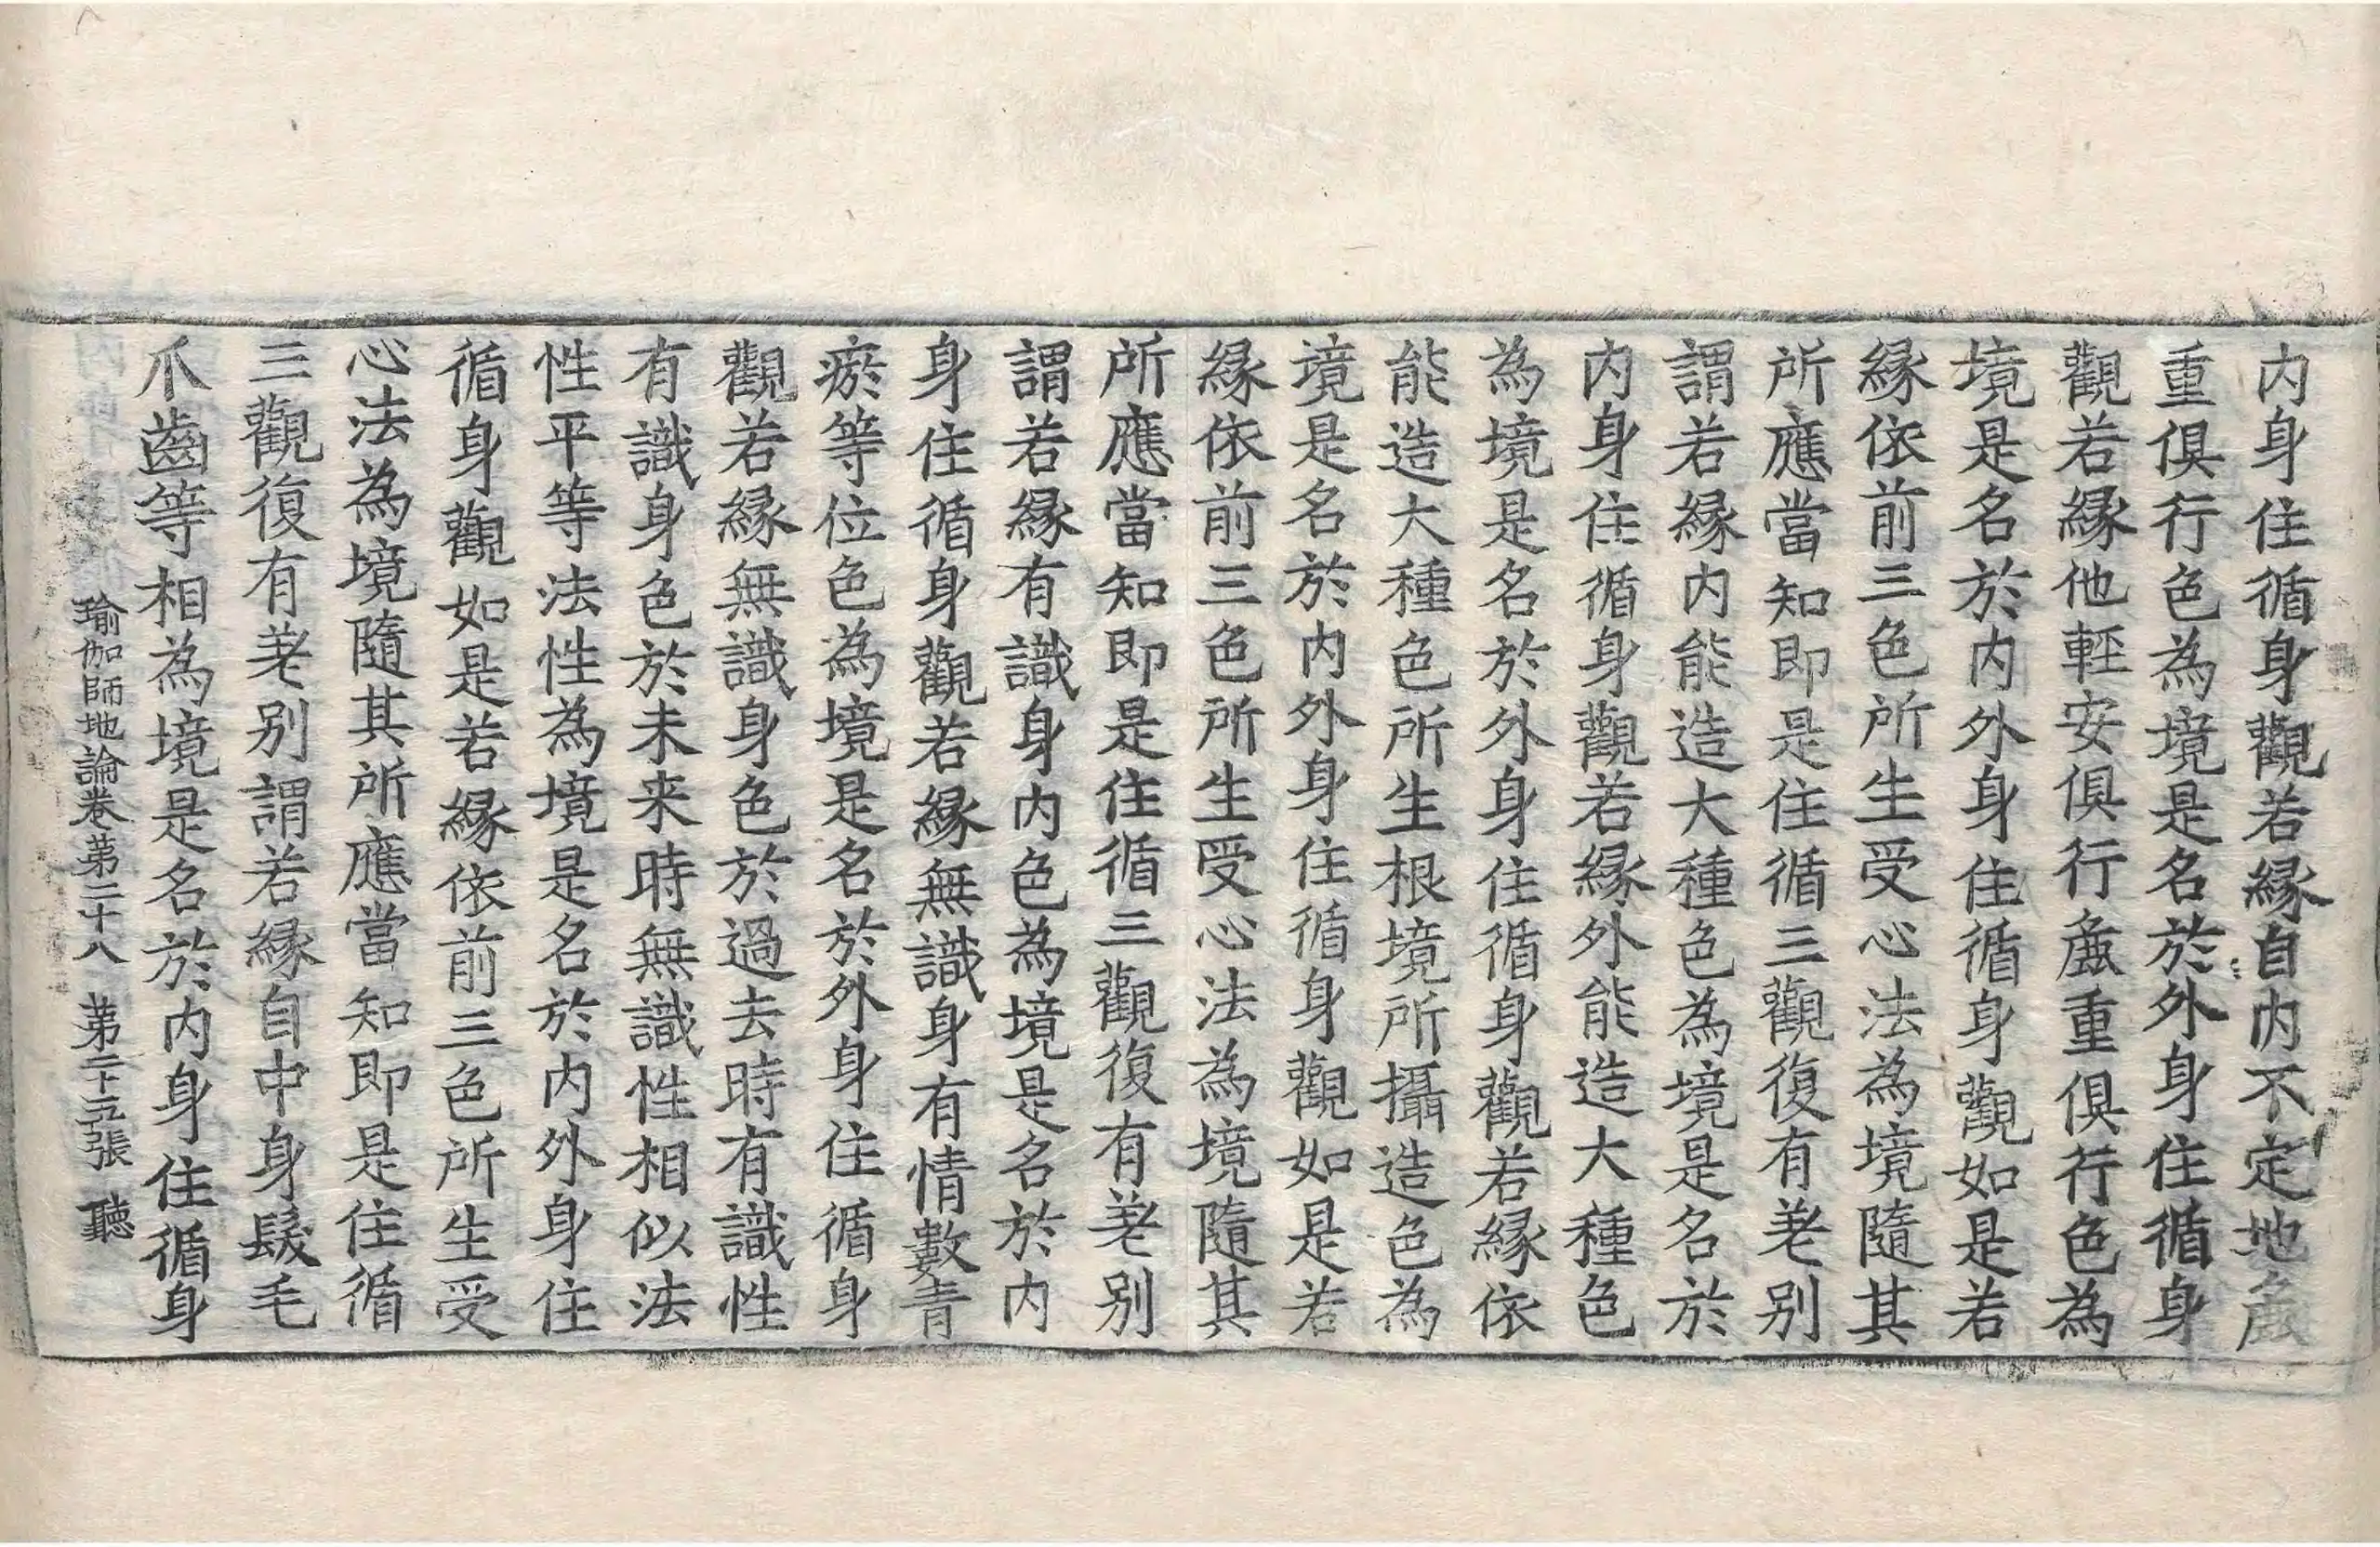 内身住循身觀若縁自内不定地麁
重俱行色為境是名於外身住循身
觀若縁他輕安俱行麁重俱行色為
境是名於内外身住循身觀如是若
縁依前三色所生受心法為境隨其
所應當知即是住循三觀復有差别
謂若縁内能造大種色為境是名於
内身住循身觀若縁外能造大種色
為境是名於外身住循身觀若縁依
能造大種色所生根境所攝造色為
境是名於内外身住循身觀如是若
縁依前三色所生受心法為境隨其
所應當知即是住循三觀復有差别
謂若縁有識身内色為境是名於内
身住循身觀若縁無識身有情數青
瘀等位色為境是名於外身住循身
觀若縁無識身色於過去時有識性
有識身色於未来時無識性相似法
性平等法性為境是名於内外身住
循身觀如是若縁依前三色所生受
心法為境隨其所應當知即是住循
三觀復有差别謂若縁自中身髮毛
爪齒等相為境是名於内身住循身
瑜伽師地論卷第二十八 第二十五張 聽